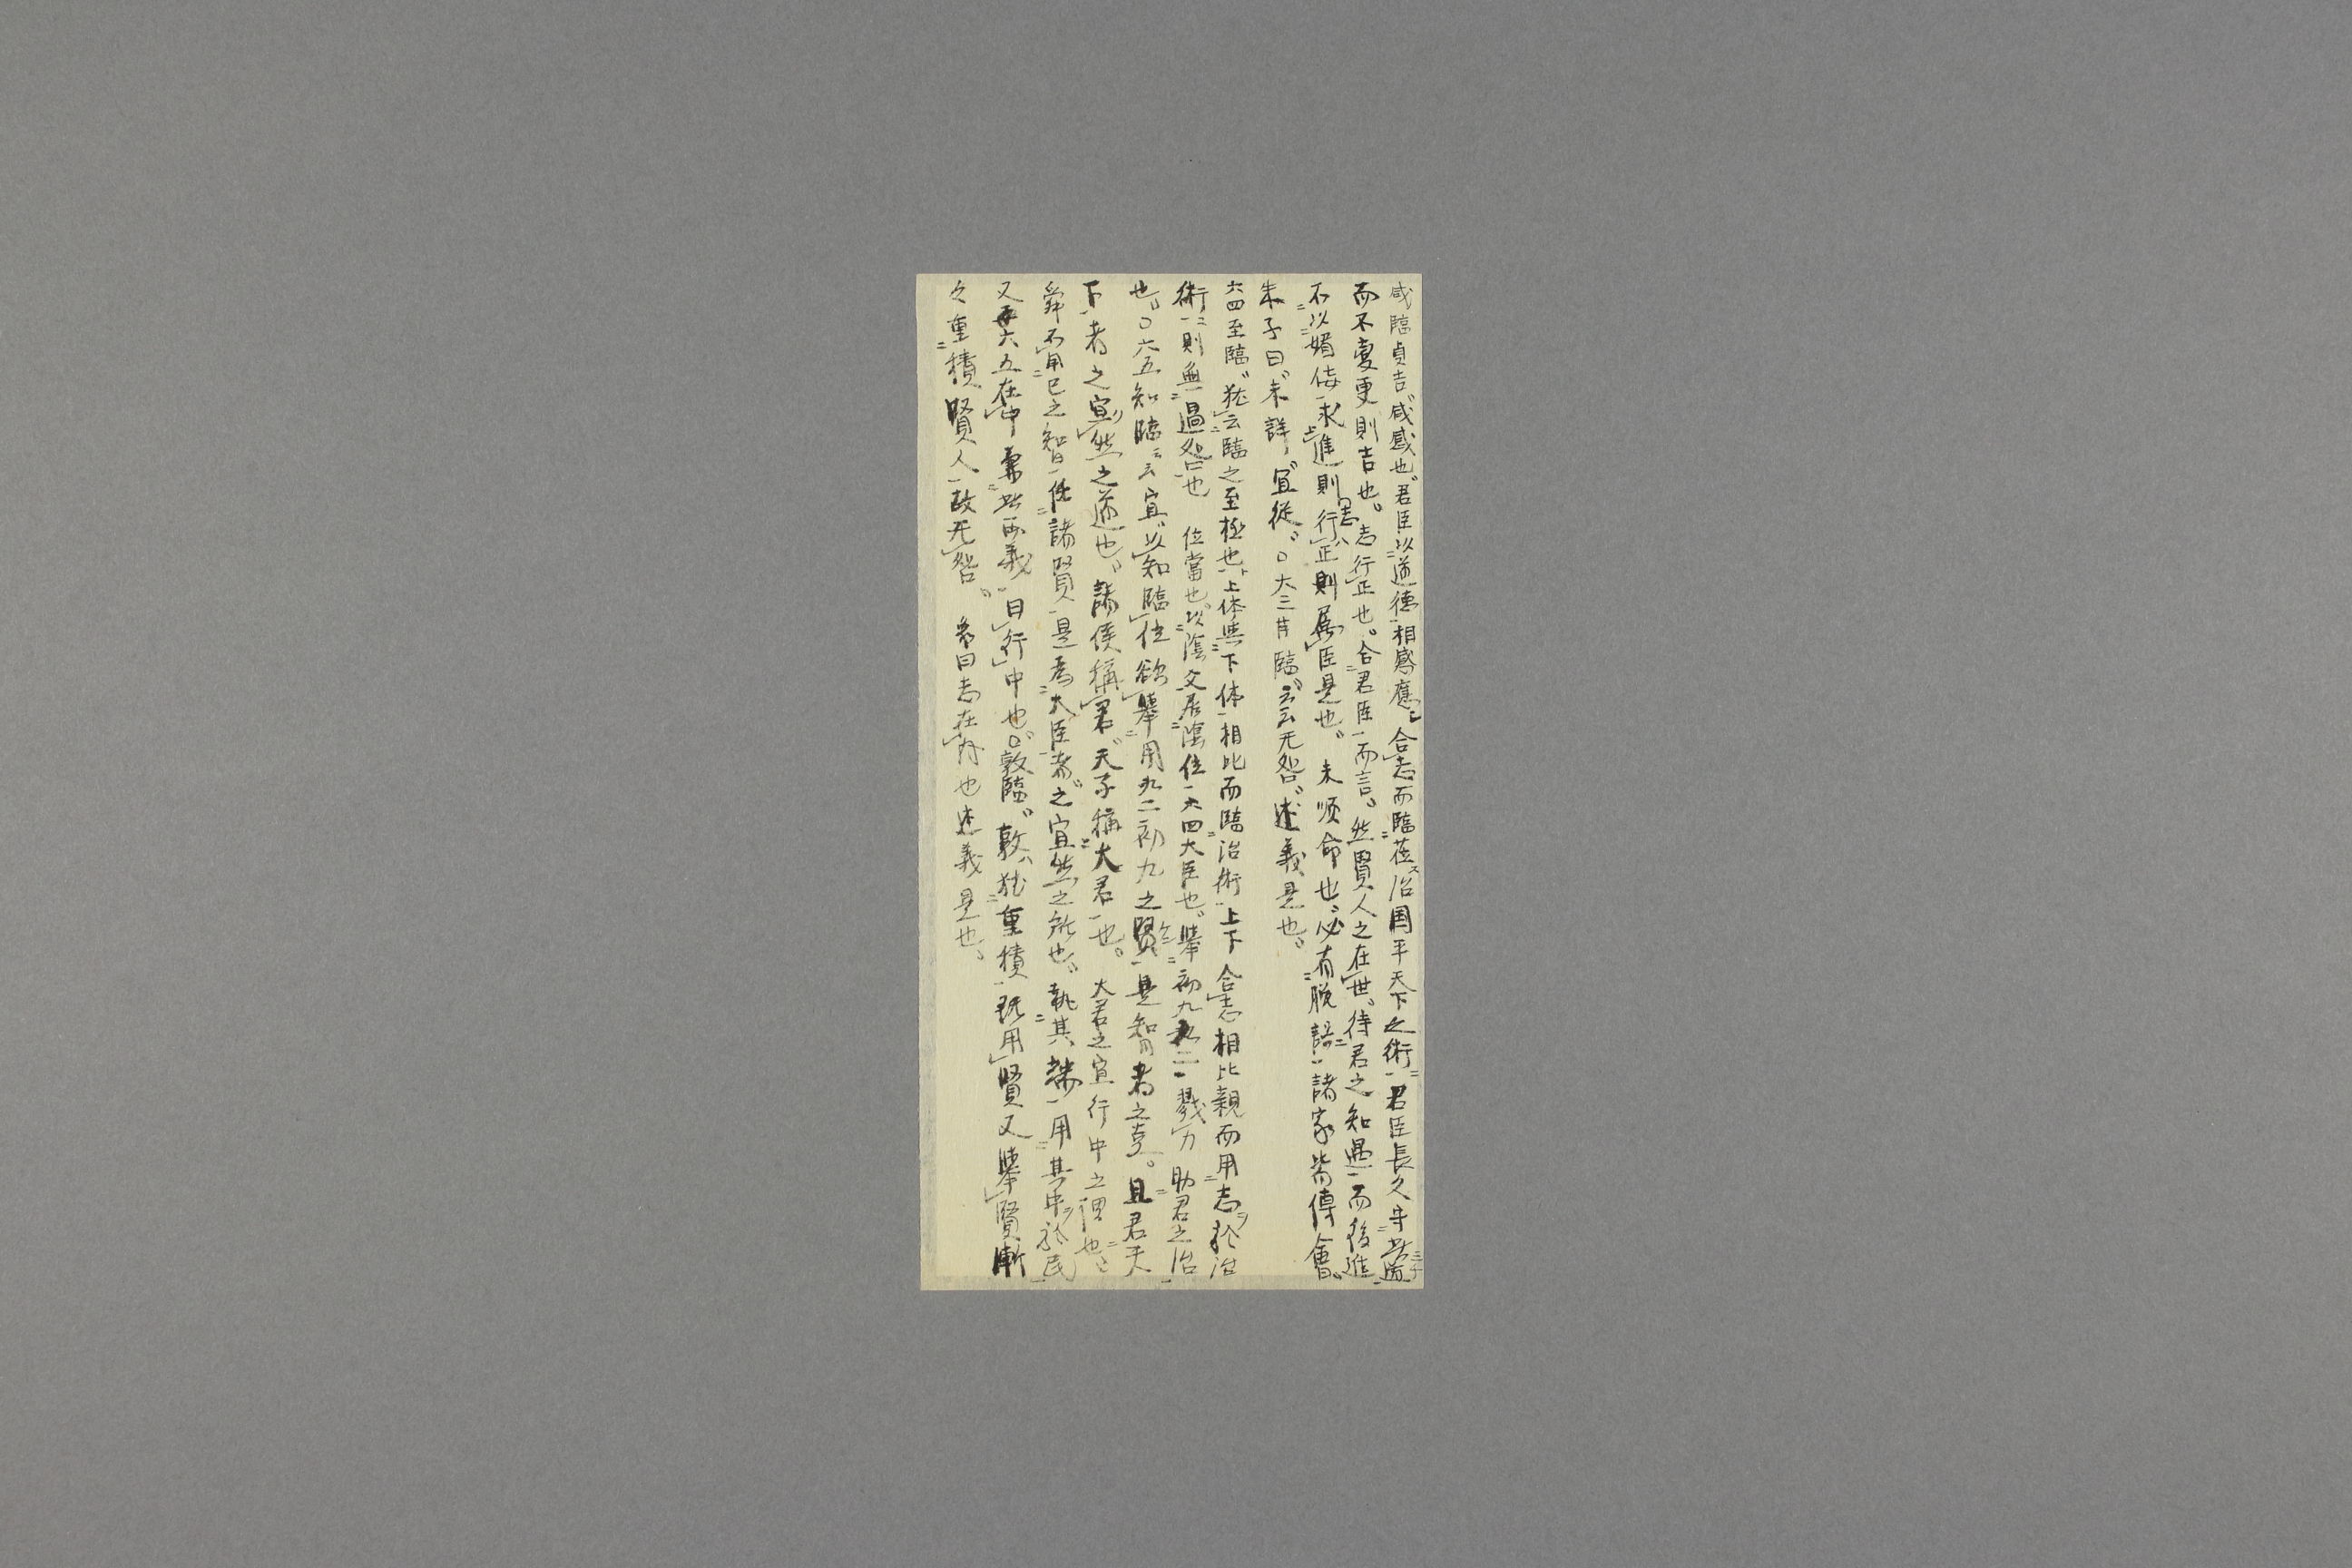 咸臨貞吉咸感也君臣以道德相感應合志而臨莅治国平天下之術君臣長久守此道
而不變更則吉也志行正也合君臣而言然賢人之在世待君之知遇而後進
不以媚侫求進則志行正則爲臣是也未順命也必有脱誤諸家皆傅會
朱子曰未詳宜從〇六三甘臨云云无咎述義是也
六四至臨猶云臨之至極也上体與下体相比而臨治術上下合志相比親而用志於治
術則無過咎也位當也以陰爻居陰位六四大臣也舉初九九二戮力助君之治
也〇六五知臨云云宜以知臨位欲舉用九二初九之賢是知者之事且君天
下者之宜然之道也諸侯稱君天子稱大君也大君之宜行中之謂也
舜不用己之智任諸賢是爲大臣者之宜然之所也執其兩端用其中於民
又六五在中兼此兩義曰行中也〇敦臨敦猶重積既用賢又舉賢漸
々重積賢人故无咎象曰志在内也述義是也